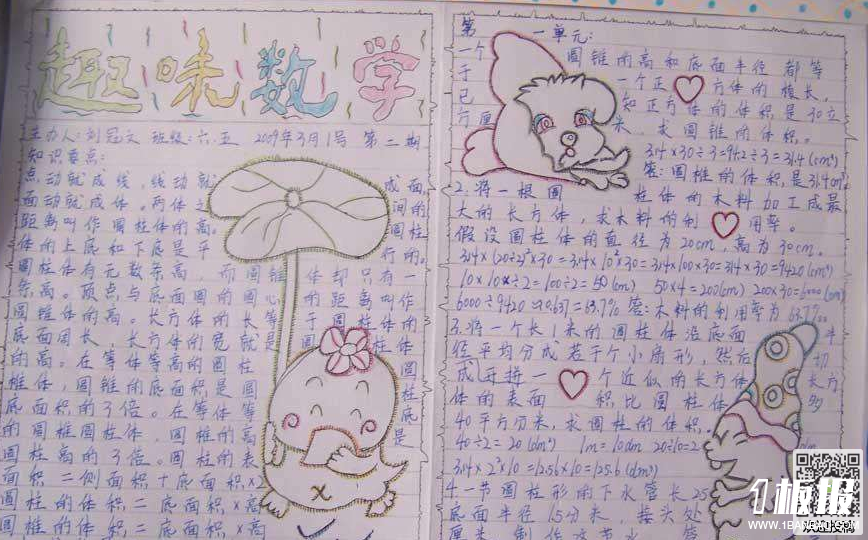 趣味数学
主办人:刘冠文 班级:六.五 2009年3月1号 第二期
知识要点:
点动就成线,线动就成面,
面动就成体。两体之间的
距离叫作圆柱体的高。圆柱
体的上底和下底是平行的。
圆柱体有无数条高,而圆锥体却只有一
条高。顶点与底面圆的圆心的距离叫作
圆锥体的高。长方体的长等于圆柱体的
底面周长,长方体的宽就是圆柱体
的高。在等体等高的圆柱圆
椎体,圆锥的底面积是圆柱
底面积的3倍。在等体等底
的圆椎圆柱体,圆椎的高是
圆柱高的3倍。圆柱的表
面积=侧面积+底面积×2
圆柱的体积=底面积×高
圆椎的体积=底面积×高
第一单元:
一个圆锥的高和底面半径都等
于一个正方体的棱长,
已知正方体的体积是30立
方厘米,求圆锥的体积。
3.14×30÷3=94.2÷3=31.4(cm³)
答:圆椎的体积是31.4cm³
2.将一根圆柱体的木料加工成最
大的长方体,求木料的利用率。
假设圆柱体的直径为20cm,高为30cm.
3.14×(20÷2)²×30=3.14×10²×30=3.14×100×30=314×30=9420(cm³)
10×10×÷2=100÷2=50(cm²) 50×4=200(cm²) 200×30=6000(cm³)
6000÷9420≈0.637=63.7% 答:木料的利用率为63.7%
3.将一个长1米的圆柱体没底面半
径平均分成若干个小扇形,然后切
成 开拼一个近似的长方体 长方
体的表面积比圆柱体多
40平方分米,求圆柱的体积。
40÷2=20(dm²) 1m=10dm 20÷10=2 dm
3.14×2²×10=12.56×10=125.6(dm³)
4.一节圆柱形的下水管长25
底面半径15分米,接头处
板报
WWW.1BANBAO.COM